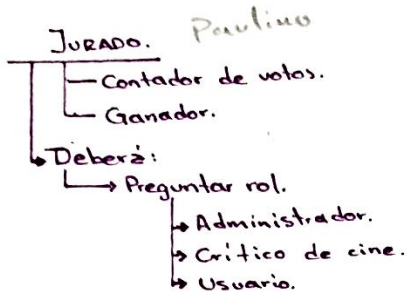 JURADO. Paulino
Contador de votos.
Ganador.
Deberá:
Preguntar rol.
Administrador.
Crítico de cine.
Usuario.